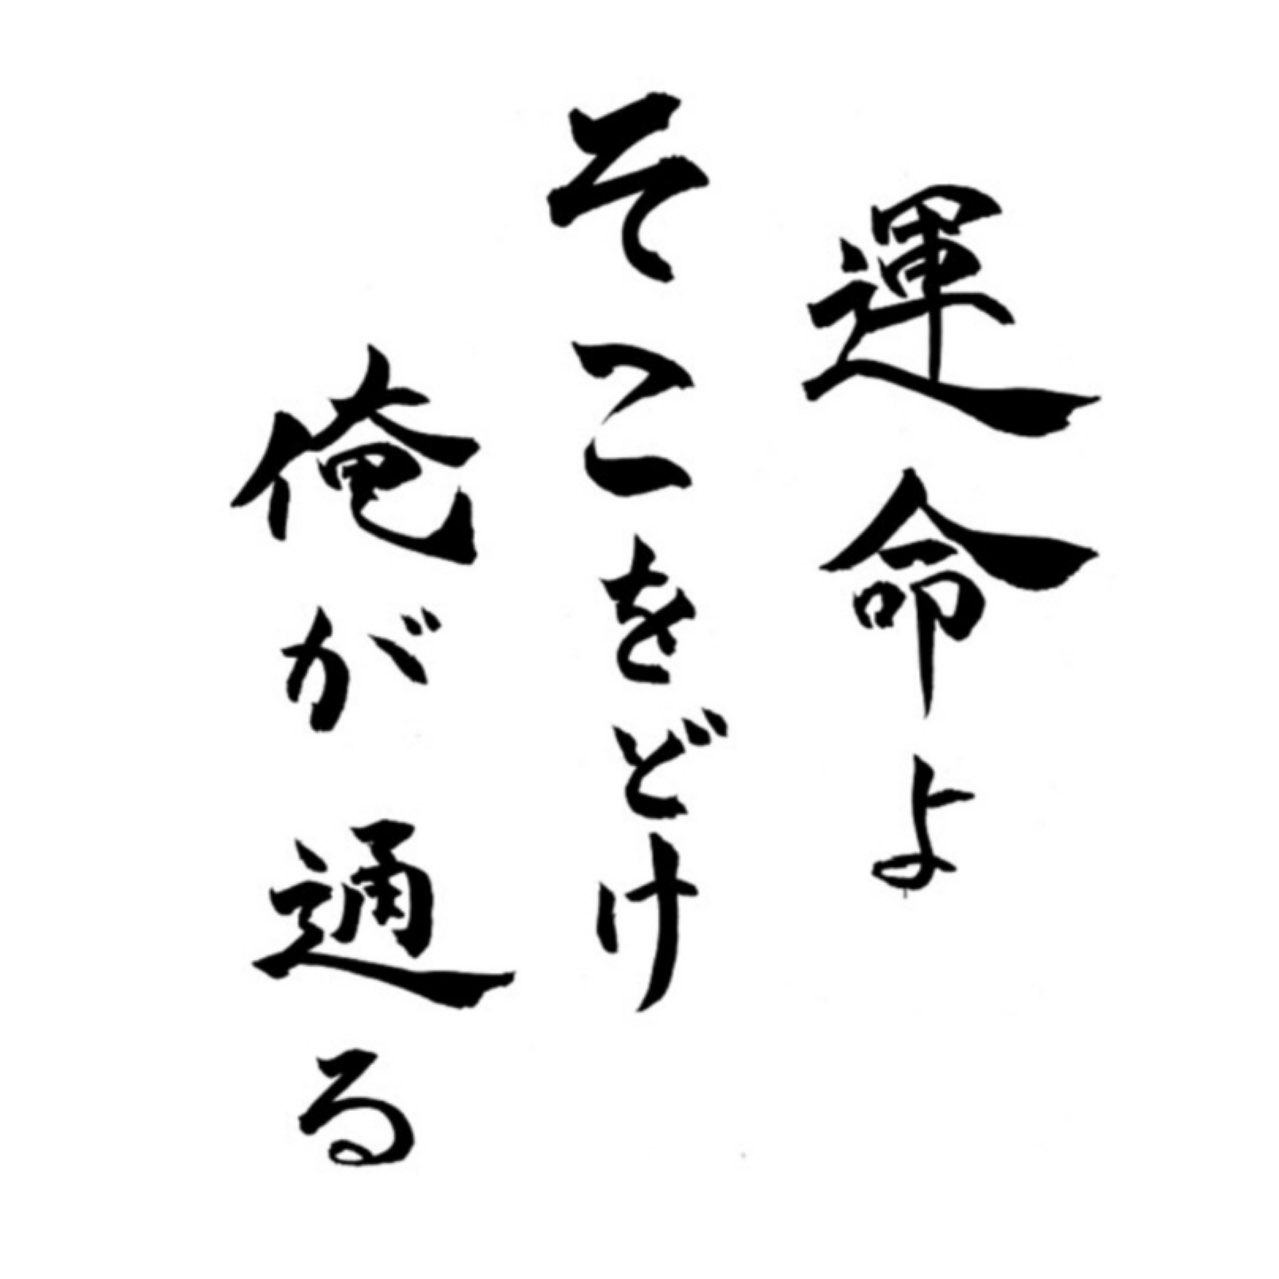 運命よ
そこをどけ
俺が通る